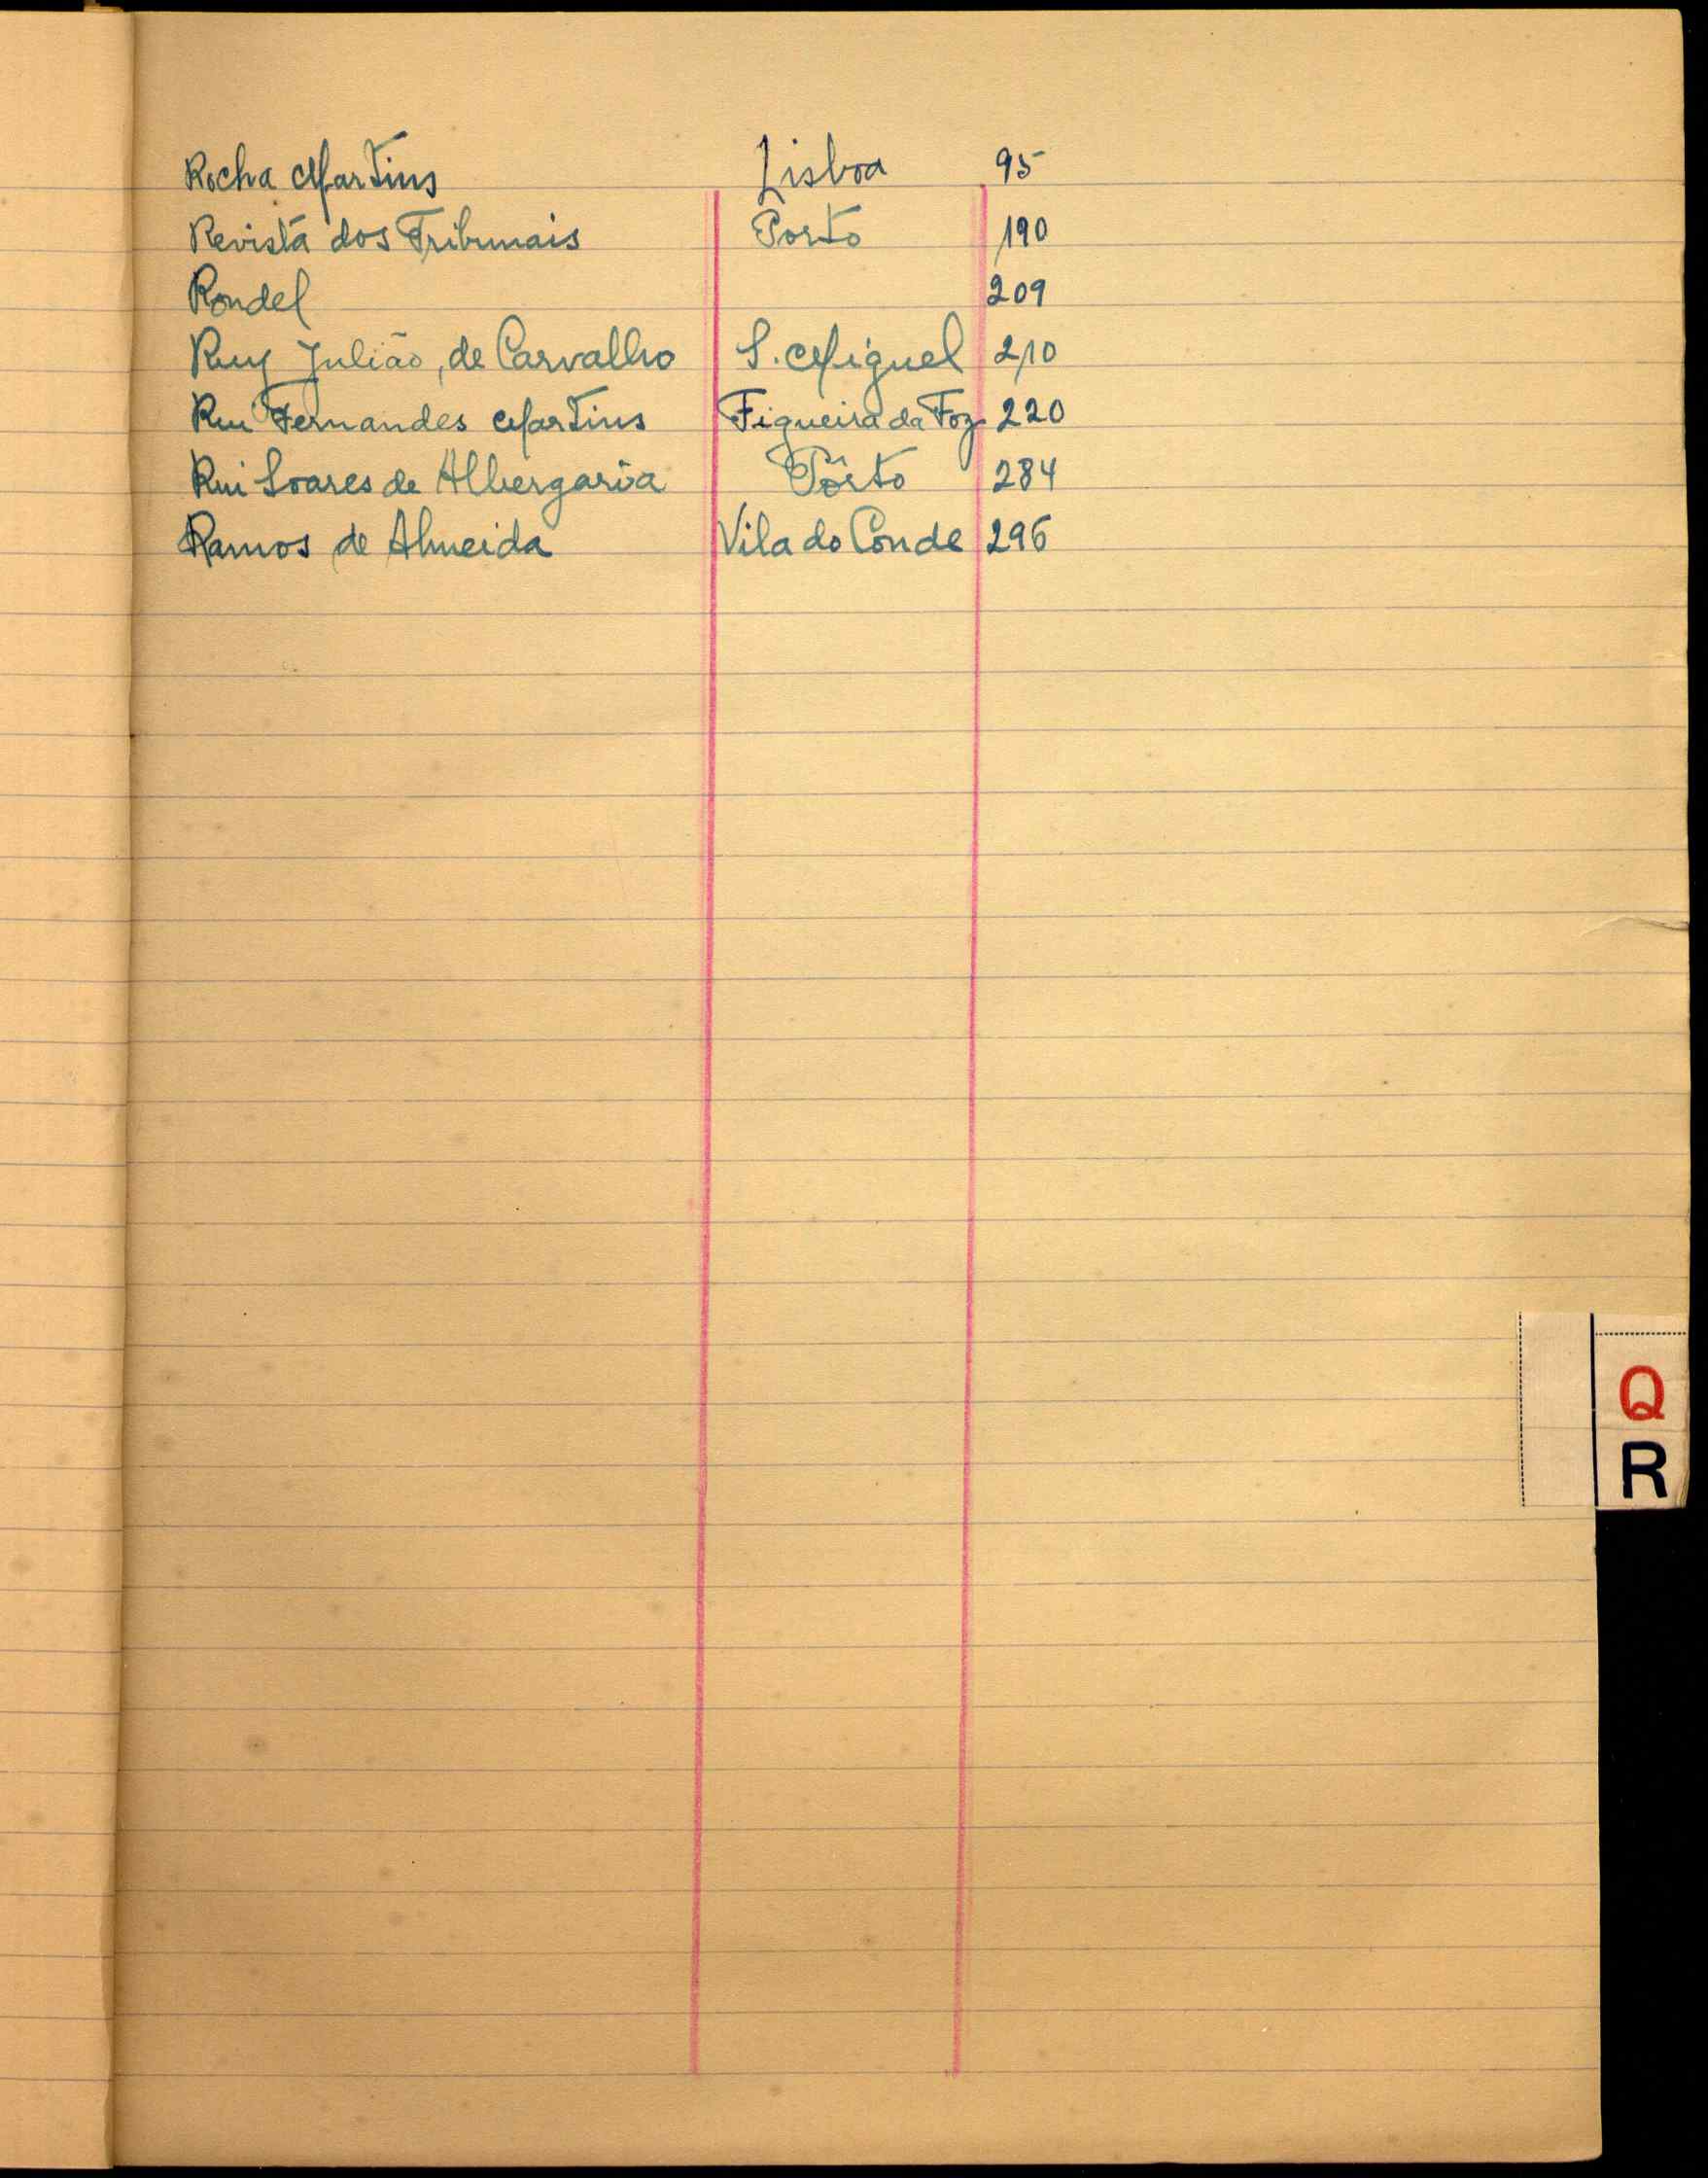 Rocha Martins Lisboa 95
Revista dos Tribunais Porto 190
Rondel 209
Ruy Julião, de Carvalho S. Miguel 210
Rui Fernandes Martins Figueira da Foz 220
Rui Soares de Albergaria Pôrto 284
Ramos de Almeida Vila do Conde 296
Q
R